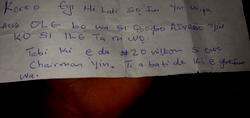 Koroo Eyi Ni Lati So fun Yin wipe
awa OLE bo wa si Gbogbo Adugbo Yin
KO SI ILE Ta mi wo
Tabi Ki e da #20 million S owo
Chairman Yin. Ti a bati de Ki e gba fun
wa.